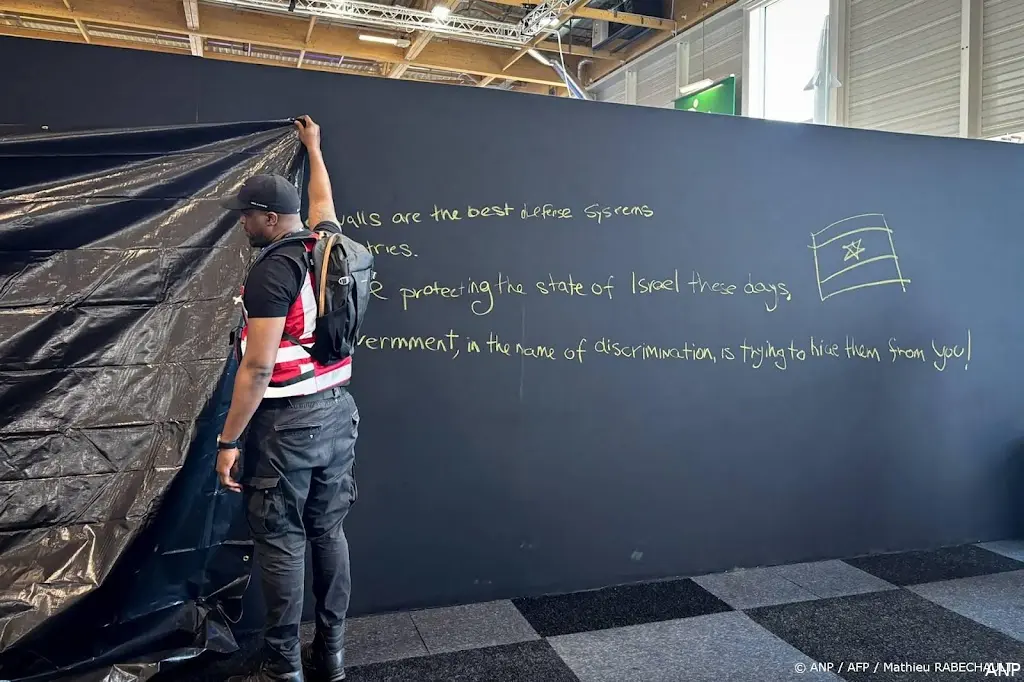 walls are the best defense systems
tries.
protecting the state of Israel these days,
vernment, in the name of discrimination, is trying to hide them from you!
© ANP / AFP / Mathieu
ANP